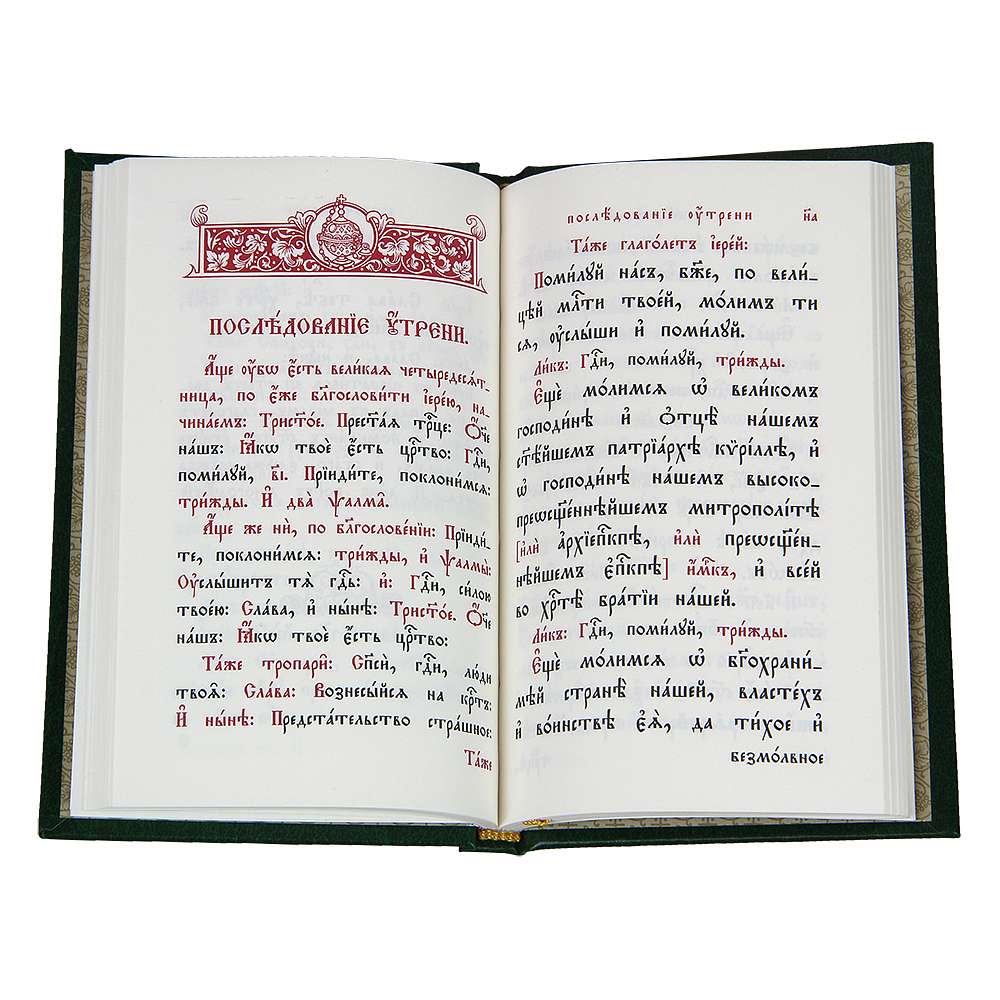 ПОСЛѢ́ДОВАНЇЕ ОУ҆́ТРЕНИ.
А҆́ще ѹ҆́бѡ є҆́сть вели́каѧ четыредесѧ́т-
ница, по є҆́же бл҃гослови́ти і҆ере́ю, на-
чина́емъ: Трист҃о́е. Прест҃а́ѧ трⷪ҇це: Ѻ҆́ч҃е
на́шъ: Ꙗ҆́кѡ твоѐ є҆́сть црⷭ҇тво: Гдⷭ҇и,
поми́лѹй, в҃і. Прїиди́те, поклони́мсѧ:
три́жды. И҆ два̀ ѱалма̑.
А҆́ще же нѝ, по бл҃гослове́нїи: Прїиди́-
те, поклони́мсѧ: три́жды, и҆ ѱалмы̀:
Оу҆слы́шитъ тѧ̀ гдⷭ҇ь: и҆: Гдⷭ҇и, си́лою
твое́ю: Сла́ва, и҆ ны́нѣ: Трист҃о́е. Ѻ҆́ч҃е
на́шъ: Ꙗ҆́кѡ твоѐ є҆́сть црⷭ҇тво:
Та́же тропарѝ: Сп҃сѝ, гдⷭ҇и, лю́ди
твоѧ̑: Сла́ва: Вознесы́йсѧ на крⷭ҇тъ:
И҆ ны́нѣ: Предста́тельство стра́шное:
Та́же
ПОСЛѢ́ДОВАНЇЕ ОУ҆́ТРЕНИ н҃а
Та́же глаго́летъ і҆ере́й:
Поми́лѹй на́съ, бж҃е, по вели́-
цѣй млⷭ҇ти твое́й, мо́лимъ ти
сѧ, ѹ҆слы́ши и҆ поми́лѹй.
Ли́къ: Гдⷭ҇и, поми́лѹй, три́жды.
Є҆щѐ мо́лимсѧ ѡ҆ вели́комъ
господи́нѣ и҆ ѻ҆тцѣ̀ на́шемъ
ст҃ѣ́йшемъ патрїа́рхѣ кѷрі́ллѣ, и҆
ѡ҆ господи́нѣ на́шемъ высоко-
преѡсщ҃е́ннѣйшемъ митрополі́тѣ
[и҆лѝ а҆рхїепⷭ҇кпѣ, и҆лѝ преѡсщ҃е́н-
нѣйшемъ є҆пⷭ҇кпѣ] и҆́мⷬ҇къ, и҆ все́й
во хрⷭ҇тѣ̀ бра́тїи на́шей.
Ли́къ: Гдⷭ҇и, поми́лѹй, три́жды.
Є҆щѐ мо́лимсѧ ѡ҆ бг҃охрани́-
мѣй странѣ̀ на́шей, власте́хъ
и҆ во́инствѣ є҆ѧ̀, да ти́хое и҆
безмо́лвное